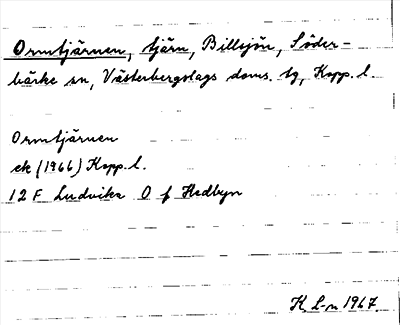 Ormtjärnen, tjärn, Billsjön, Söder-
bärke sn, Västerbergslags doms. tg, Kopp. l.
Ormtjärnen
ek (1966) Kopp. l.
12 F Ludvika O f Hedbyn
K L-n 1967.